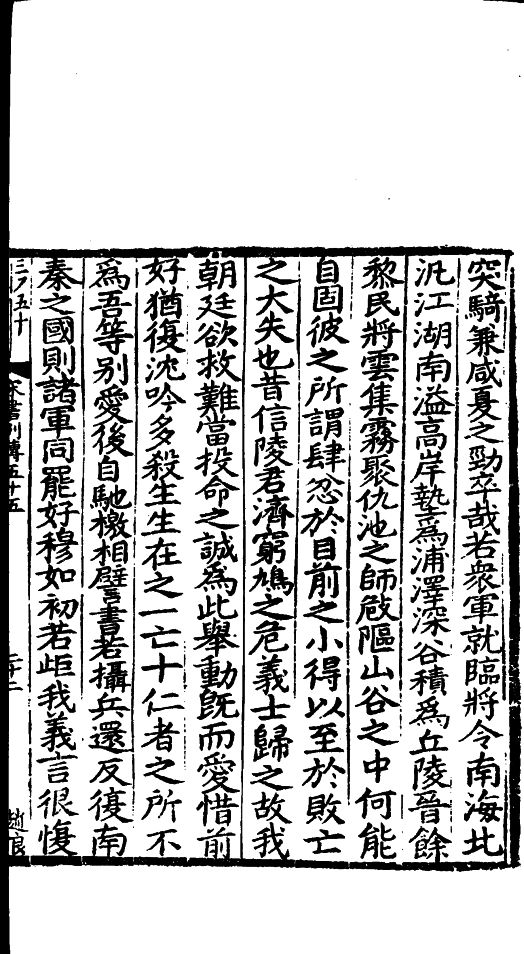 突騎兼咸夏之勁卒哉若衆軍就臨將令南海北
汎江湖南溢高岸墊為浦澤深谷積為丘陵晉餘
黎民將雲集霧聚仇池之師敧𨻶山谷之中何能
自固彼之所謂肆忿於目前之小得以至於敗亡
之大失也昔信陵君濟窮鳩之危義士歸之故我
朝廷欲救難當投命之誠為此舉動旣而愛惜前
好猶復沈吟多殺生生在之一亡十仁者之所不
為吾等別愛後自馳檄相譬書若攝兵還反復南
秦之國則諸軍同罷好穆如初若距我義言很愎
宋書列傳五十五
二十二
趙良